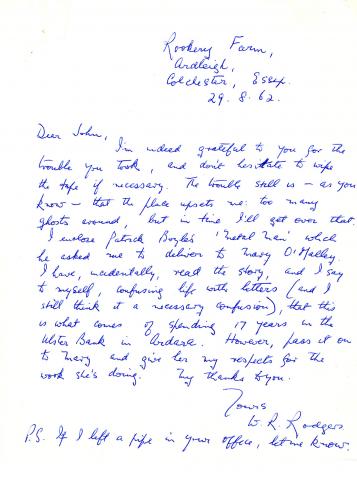 Rookery Farm,
Ardleigh,
Colchester, Essex.
29. 8. 62.
Dear John,
I'm indeed grateful to you for the
trouble you took, and don't hesitate to wipe
the tape if necessary. The trouble still is – as you
know – that the place upsets me: too many
ghosts around, but in time I'll get over that.
I enclose Patrick Boyle's 'Metal Man' which
he asked me to deliver to Mary O'Malley.
I have, incidentally, read the story, and I say
to myself, confusing life with letters (and I
still think it a necessary confusion), that this
is what comes of spending 17 years in the
Ulster Bank in Ardara. However, pass it on
to Mary and give her my respects for the
work she's doing. My thanks to you.
Yours
W. R. Rodgers
P.S. If I left a pipe in your office, let me know.